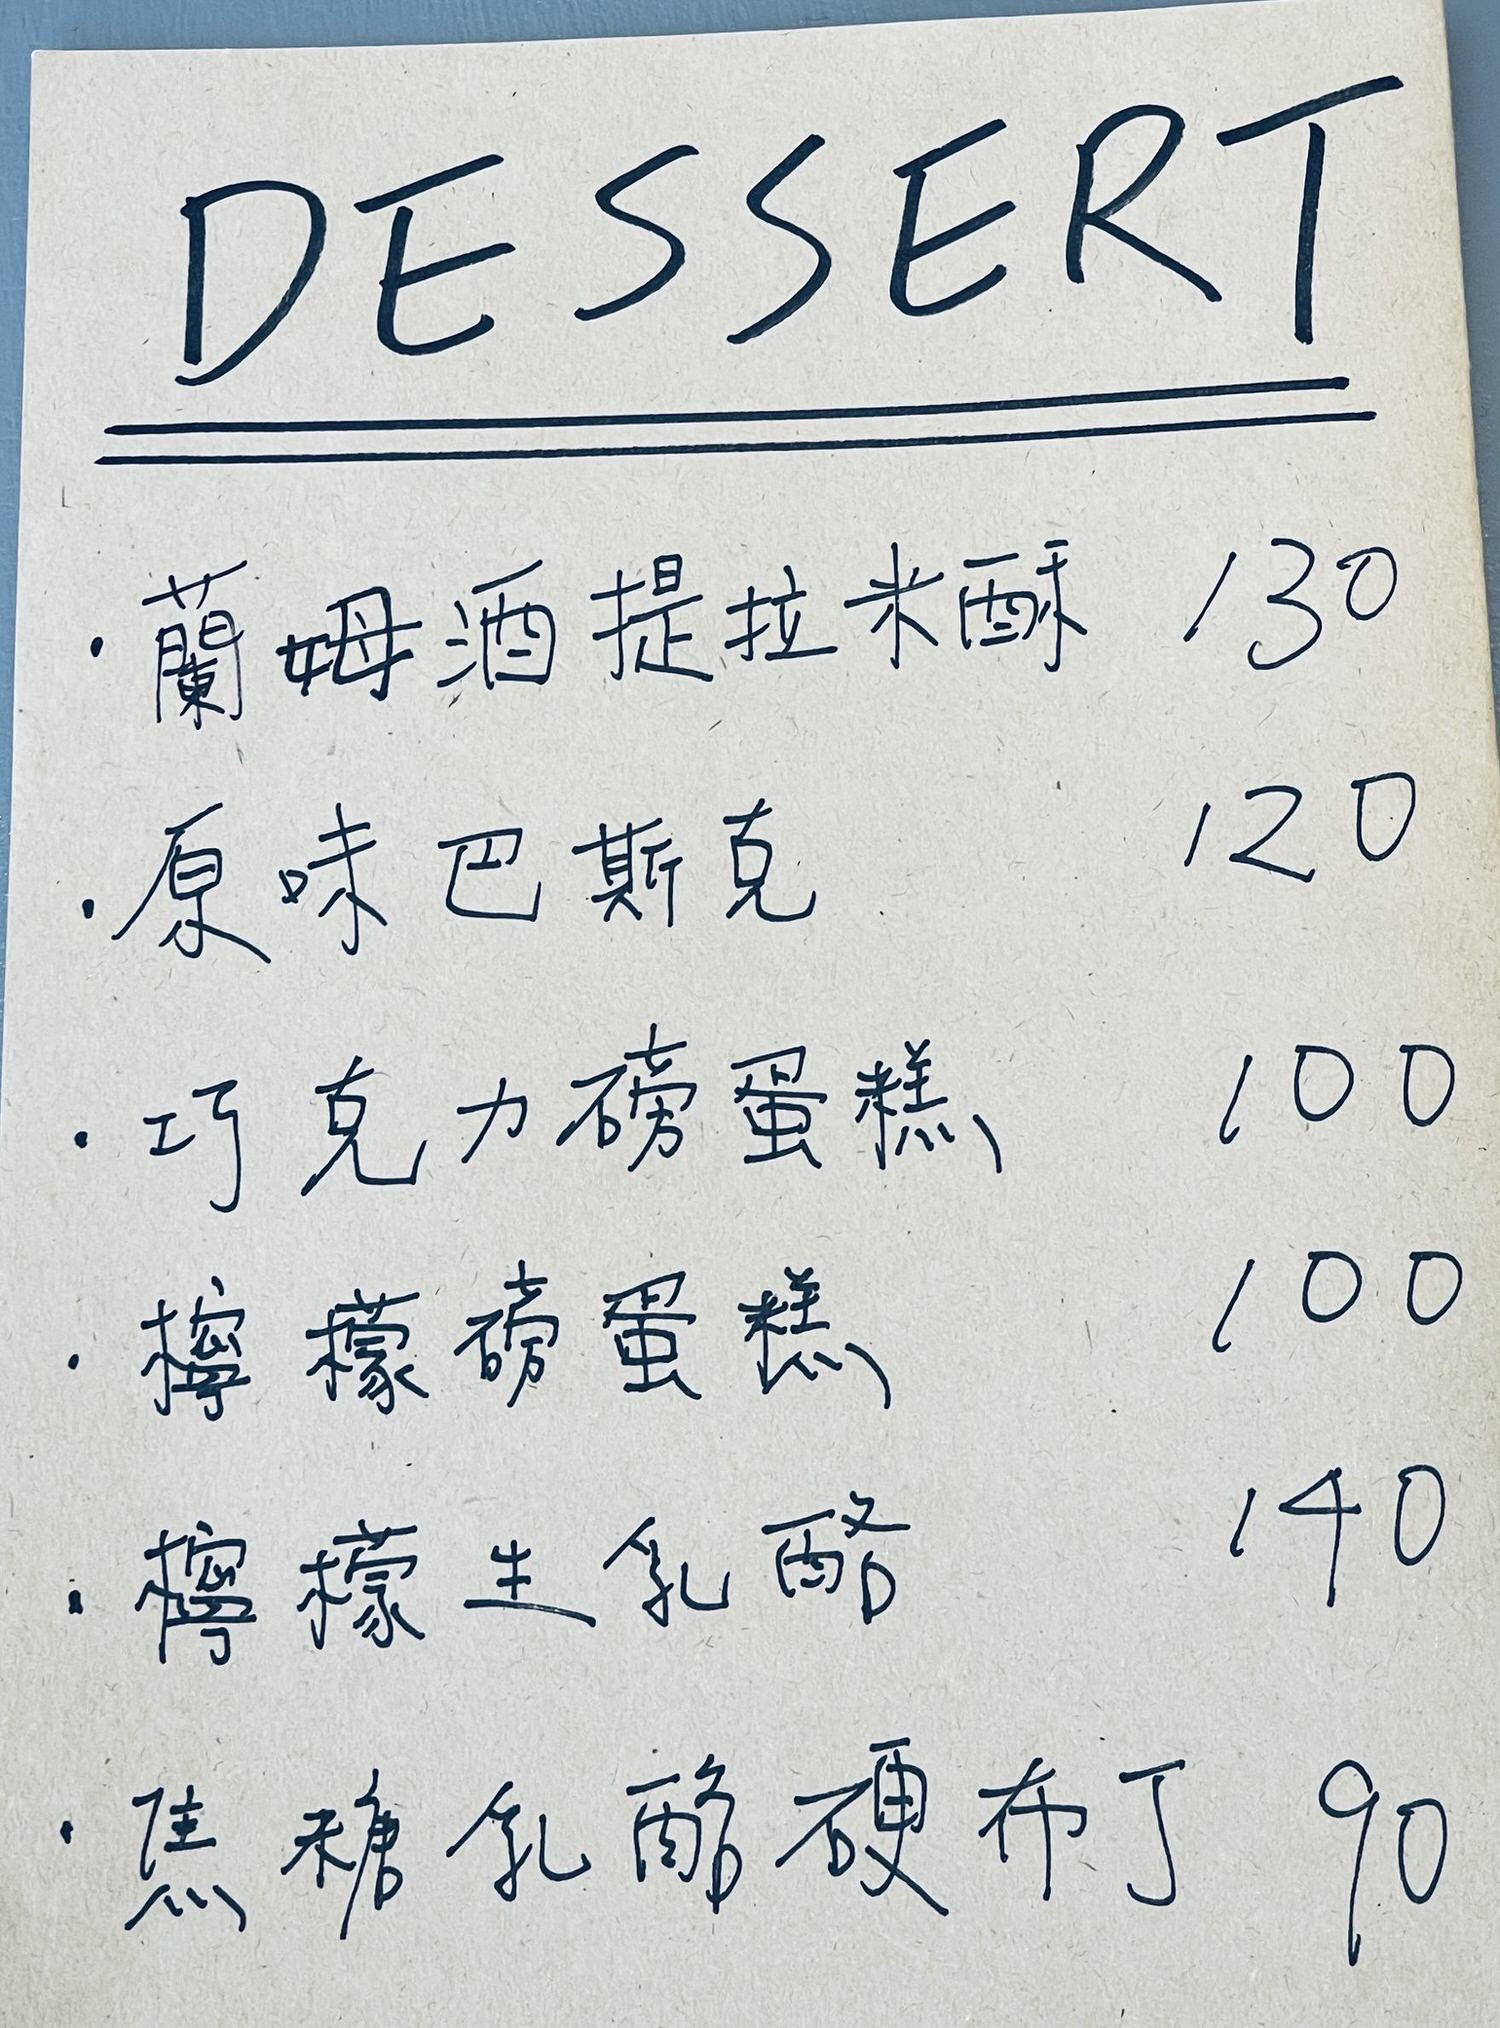 DESSERT
・蘭姆酒提拉米酥 130
・原味巴斯克 120
・巧克力磅蛋糕 100
・檸檬磅蛋糕 100
・檸檬生乳酪 140
・焦糖乳酪硬布丁 90